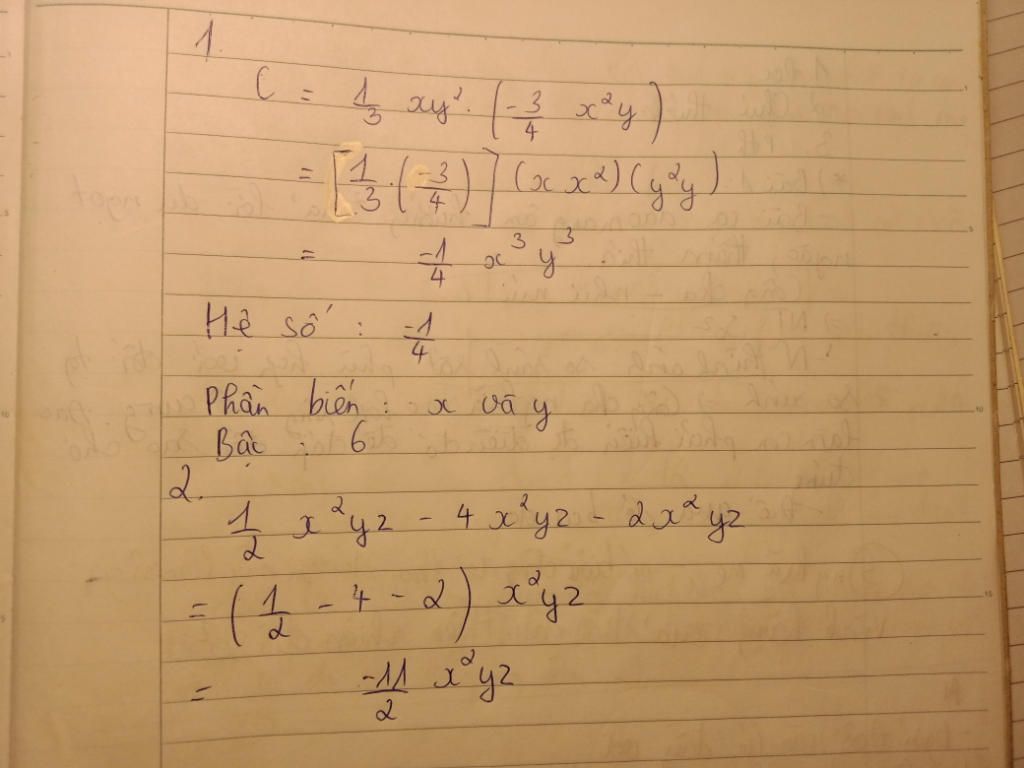 1.
C = 1/3 xy². (-3/4 x²y)
= [1/3 . (-3/4)] (x x²)(y²y)
= -1/4 x³y³
Hệ số : -1/4
Phần biến : x và y
Bậc : 6
2.
1/2 x²yz - 4x²yz - 2x²yz
= (1/2 - 4 - 2) x²yz
= -11/2 x²yz